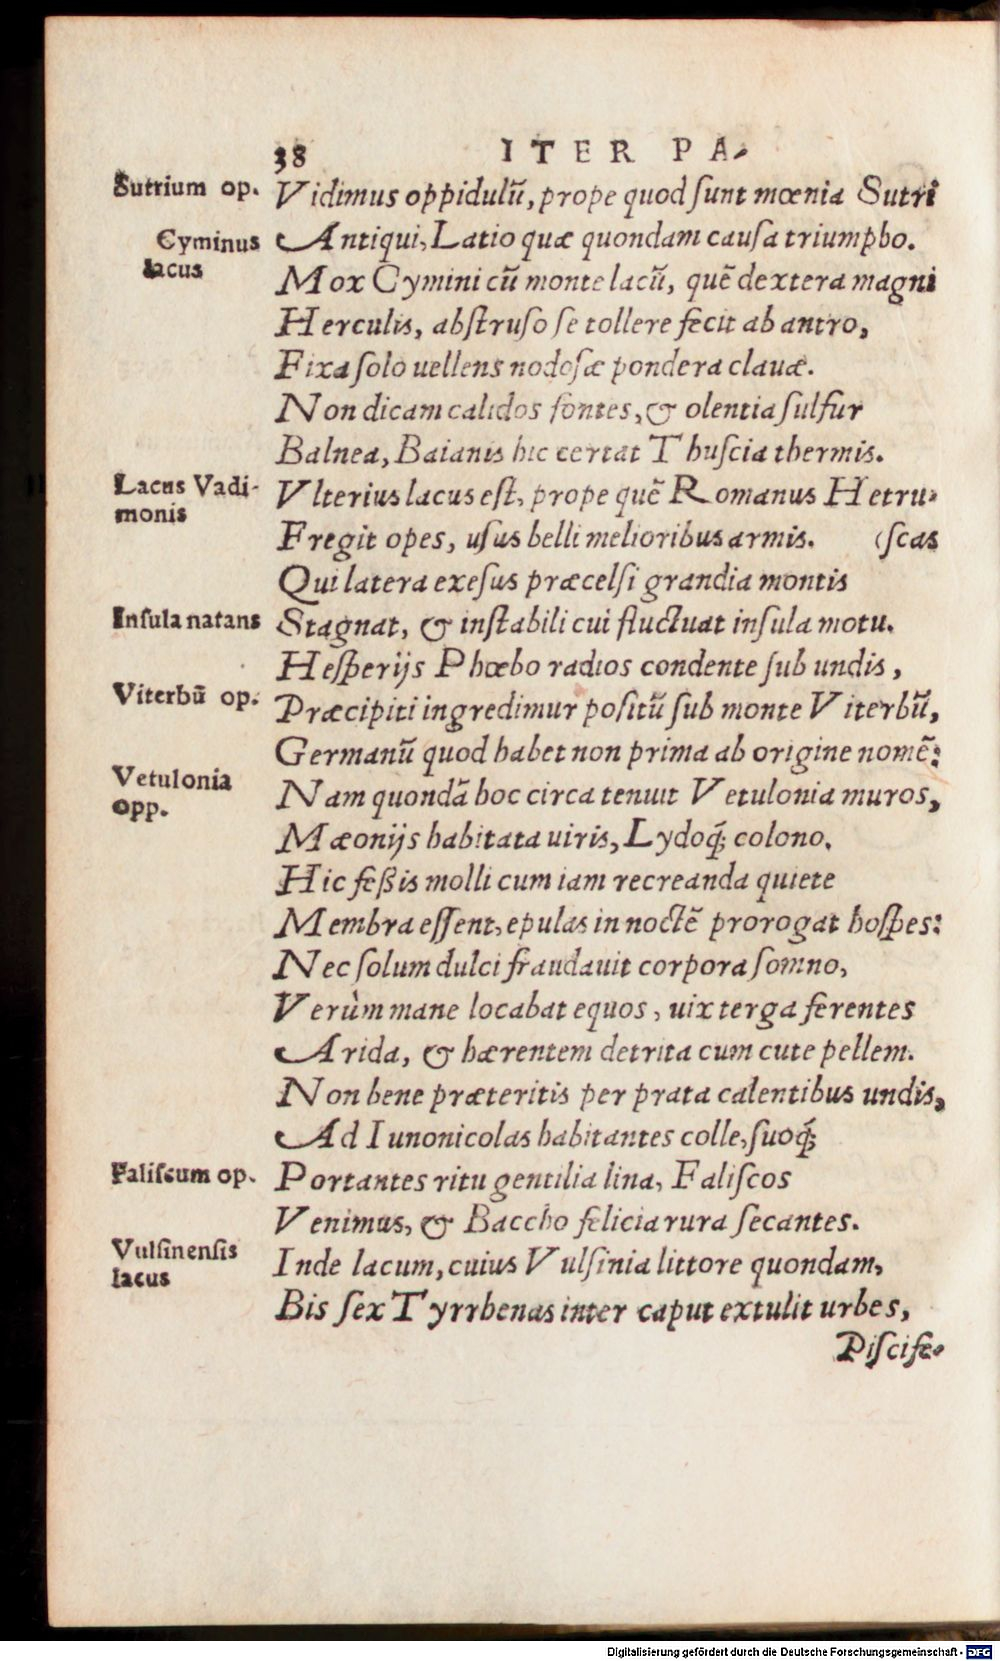 38 ITER PA-
Sutrium op. Vidimus oppidulũ, prope quod ſunt mœnia Sutri
Cyminus Antiqui, Latio quæ quondam cauſa triumpho.
lacus Mox Cymini cũ monte lacũ, quẽ dextera magni
Herculis, abſtruſo ſe tollere fecit ab antro,
Fixa ſolo uellens nodoſæ pondera clauæ.
Non dicam calidos fontes, & olentia ſulfur
Balnea, Baianis hic certat Thuſcia thermis.
Lacus Vadi- Vlterius lacus eſt, prope quẽ Romanus Hetru-
monis Fregit opes, uſus belli melioribus armis. (ſcas
Qui latera exeſus præcelſi grandia montis
Inſula natans Stagnat, & inſtabili cui fluctuat inſula motu.
Heſperijs Phœbo radios condente ſub undis,
Viterbũ op. Præcipiti ingredimur poſitũ ſub monte Viterbũ,
Germanũ quod habet non prima ab origine nomẽ:
Vetulonia Nam quondã hoc circa tenuit Vetulonia muros,
opp. Mæonijs habitata uiris, Lydoq́; colono.
Hic feßis molli cum iam recreanda quiete
Membra eſſent, epulas in noctẽ prorogat hoſpes:
Nec ſolum dulci fraudauit corpora ſomno,
Verùm mane locabat equos, uix terga ferentes
Arida, & hærentem detrita cum cute pellem.
Non bene præteritis per prata calentibus undis,
Ad Iunonicolas habitantes colle, ſuoq́;
Faliſcum op. Portantes ritu gentilia lina, Faliſcos
Venimus, & Baccho felicia rura ſecantes.
Vulſinenſis Inde lacum, cuius Vulſinia littore quondam,
lacus Bis ſex Tyrrhenas inter caput extulit urbes,
Piſcife-
Digitalisierung gefördert durch die Deutsche Forschungsgemeinschaft - DFG